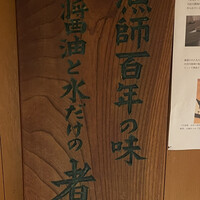 漁師百年の味
醤油と水だけの
者